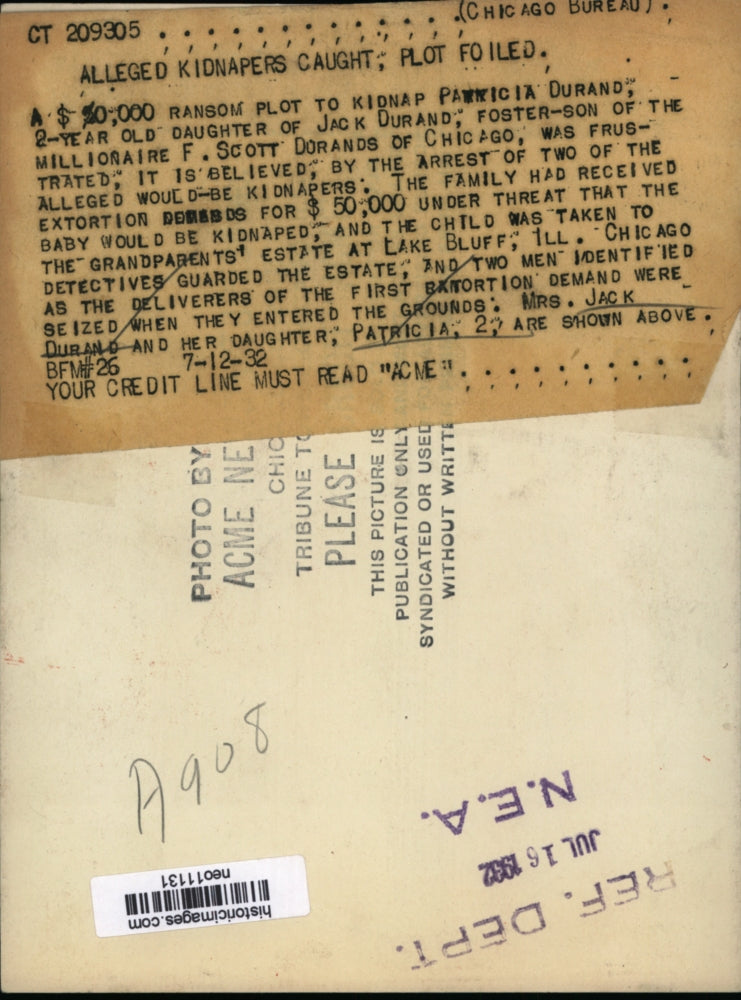 CT 209305 . . . . . . . . . . . . . (CHICAGO BUREAU).
ALLEGED KIDNAPERS CAUGHT; PLOT FOILED.
A $ 50,000 RANSOM PLOT TO KIDNAP PATRICIA DURAND,
2-YEAR OLD DAUGHTER OF JACK DURAND, FOSTER-SON OF THE
MILLIONAIRE F. SCOTT DURANDS OF CHICAGO, WAS FRUS-
TRATED, IT IS BELIEVED, BY THE ARREST OF TWO OF THE
ALLEGED WOULD-BE KIDNAPERS. THE FAMILY HAD RECEIVED
EXTORTION DEMANDS FOR $ 50,000 UNDER THREAT THAT THE
BABY WOULD BE KIDNAPED, AND THE CHILD WAS TAKEN TO
THE GRANDPARENTS' ESTATE AT LAKE BLUFF, ILL. CHICAGO
DETECTIVES GUARDED THE ESTATE, AND TWO MEN IDENTIFIED
AS THE DELIVERERS OF THE FIRST EXTORTION DEMAND WERE
SEIZED WHEN THEY ENTERED THE GROUNDS. MRS. JACK
DURAND AND HER DAUGHTER, PATRICIA, 2, ARE SHOWN ABOVE.
BFM#26 7-12-32
YOUR CREDIT LINE MUST READ "ACME". . . . . . . . . . .
PHOTO BY
ACME NE
CHIC
TRIBUNE T
PLEASE
THIS PICTURE IS
PUBLICATION ONLY
SYNDICATED OR USED
WITHOUT WRITT
A908
N.E.A.
JUL 16 1932
REF. DEPT.
historicimages.com
neo11131